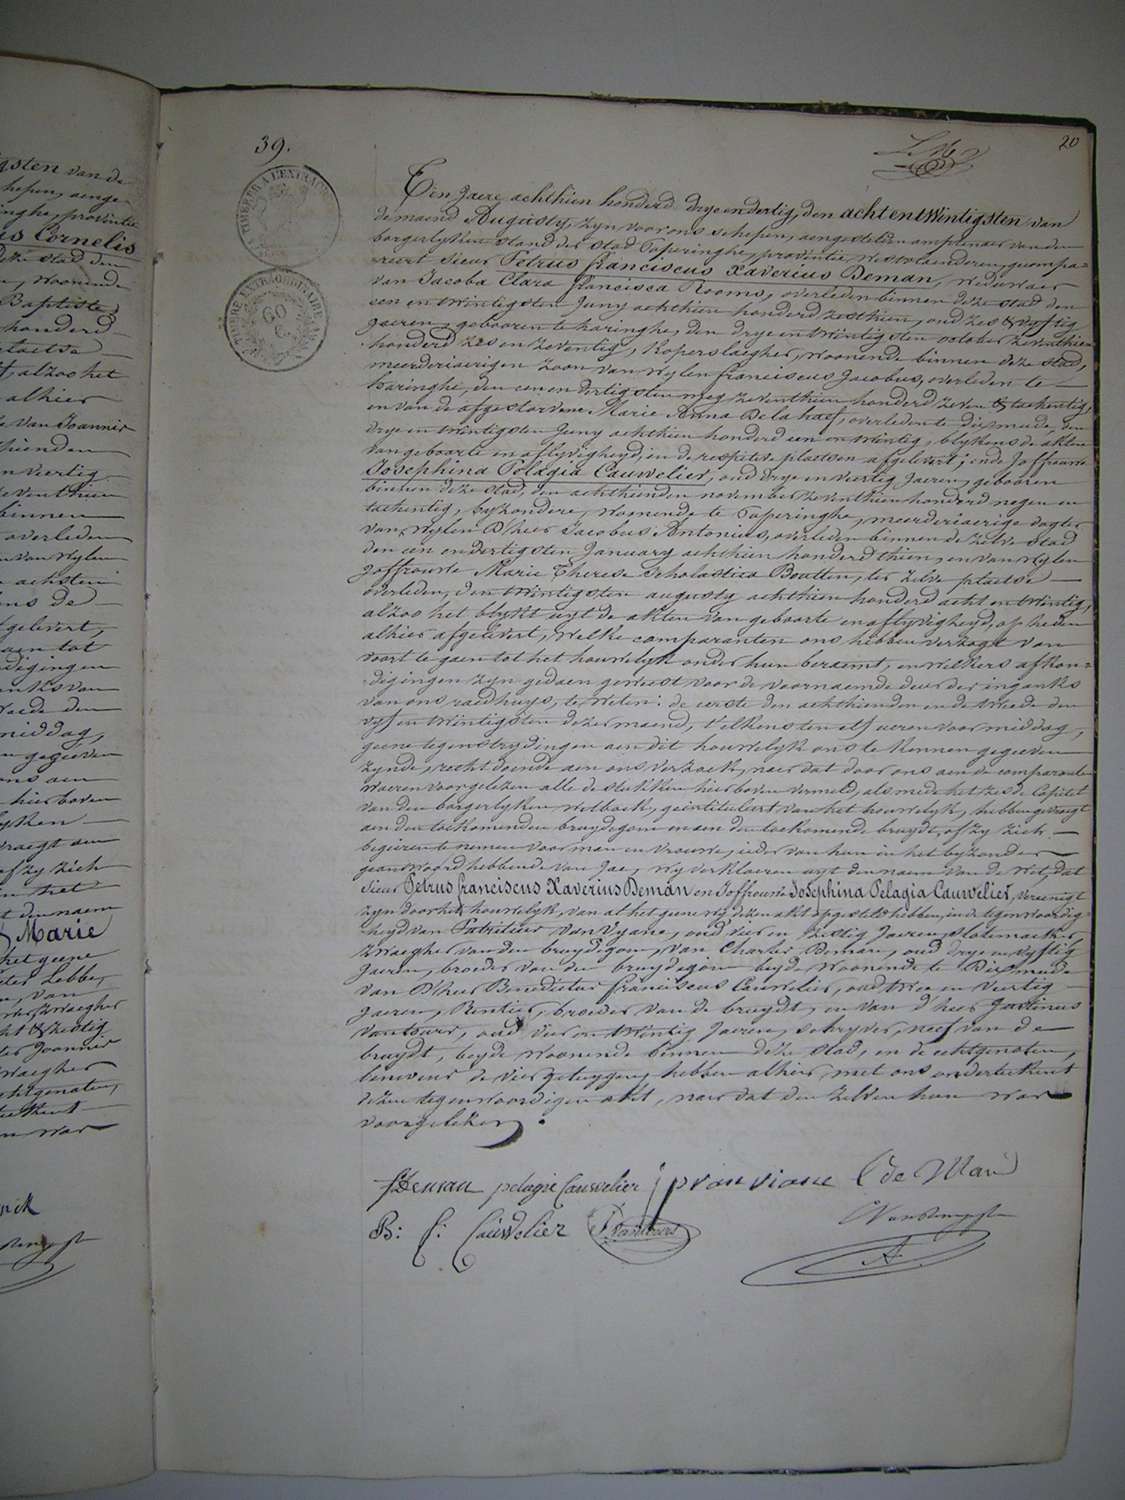 39.
20
TIMBRE A L'EXTRAORD
TIMBRE EXTRAORDINAIRE
60
Den Jaere achthien honderd drye en dertig, den achtentwintigsten van
de maend Augusty, zyn voor ons schepen, aengestelden amptenaer van den
borgerlyken stand der stad Poperinghe, provintie Westvlaenderen, gecompa-
reert Sieur Petrus franciscus Xaverius Deman, Weduwaer
van Jacoba Clara francisca Rooms, overleden binnen deze stad den
een en twintigsten Juny achthien honderd zesthien, oud zes & vyftig
Jaeren, gebooren te haringhe, den drye en twintigsten october zeventhien
honderd zes en zeventig, koperslaegher, woonende binnen deze stad,
meerderjaerigen zoon van wylen franciscus Jacobus, overleden te
haringhe, den een en dertigsten mey zeventhien honderd zeven & tachentig,
en van de afgestorvene Marie Anna Delahaef, overleden te dixmude, den
drye en twintigsten Juny achthien honderd een en twintig, blykens de akten
van geboorte en aflyvigheyd, in de respective plaetsen afgelevert; ende Joffrouwe
Josephina Pelagia Cauwelier, oud drye en veertig Jaeren, gebooren
binnen deze stad, den achthienden november zeventhien honderd negen en
tachentig, byzondere, woonende te Poperinghe, meerderjaerige dogter
van wylen D'heer Jacobus Antonius, overleden binnen de zelve stad
den een en dertigsten January achthien honderd thien, en van wylen
Joffrouwe Marie Therese Scholastica Boutten, ter zelve plaetse
overleden, den twintigsten augusty achthien honderd acht en twintig,
alzoo het blykt uyt de akten van geboorte en aflyvigheyd, op heden
alhier afgelevert, welke comparanten ons hebben verzogt van
voort te gaen tot het houwelyk onder hun beraemt, en welkers afkon-
digingen zyn gedaen geweest voor de voornaemde deur der ingank
van ons raedhuys, te weten: de eerste den achthienden en de tweede den
vyf en twintigsten dezer maend, telkens ten elf ueren voor middag,
geene tegenstrydingen aen dit houwelyk ons te kennen gegeeven
zynde, recht doende aen ons verzoek, naer dat door ons aen de comparanten
waeren voorgelezen alle de stukken hier boven vermeld, als mede het zesde Capitel
van den borgerlyken wetboek, geintituleert van het houwelyk, hebben gevraegt
aen den toekomenden bruydegom en aen den toekomende bruydt, of zy zich
begeeren te nemen voor man en vrouwe, ieder van hun in het byzonder
geantwoord hebbende van Jae, wy verklaeren uyt den naem van de wet, dat
Sieur Petrus franciscus Xaverius Deman en Joffrouwe Josephina Pelagia Cauwelier, vereenigt
zyn door het houwelyk, van al het geene wy dezen akt opgesteld hebben, in de tegenwoordig-
heyd van Vanvyane, oud vier en zestig Jaeren, slotemaeker,
zwaegher van den bruydegom, van Charles Deman, oud drye en vyftig
Jaeren, broeder van den bruydegom beyde woonende te Dixmude
van D'heer Benedictus franciscus Cauwelier, oud twee en veertig
Jaeren, Rentier, broeder van de bruydt, en van d'heer Justinus
Vantours, oud vier en twintig Jaeren, schryver, neef van de
bruydt, beyde woonende binnen deze stad, en de echtgenoten,
benevens de vier getuygen, hebben alhier, met ons onderteekent
dezen tegenwoordigen akt, naer dat den zelven hun was
voorgelezen.
Deman pelagie Cauwelier p vanviane C de Man
B: f: Cauwelier J Vantours
gsten van de
Cornelis
Baptiste,
honderd
plaetse
alzoo het
alhier
van Joannis
binnen
overleden
van wylen
gelevert,
tot
middag,
gegeeven
hier boven
of zy zich
den naem
Marie
Lebbe,
Joannes
echtgenoten,
was